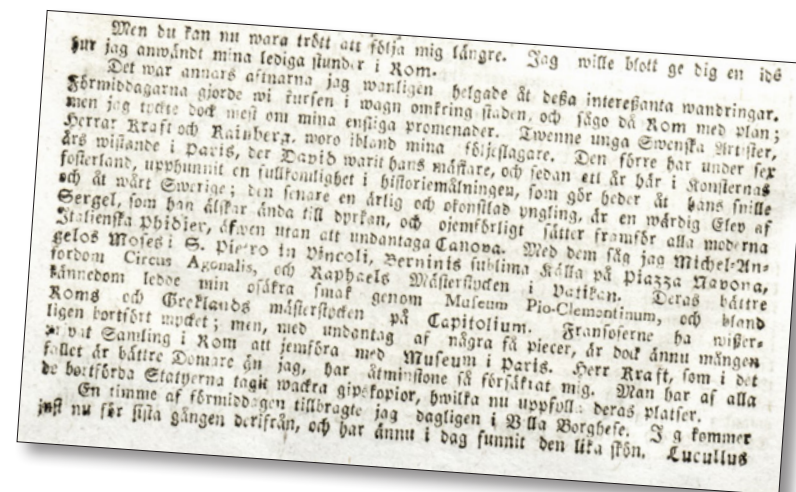 Men du kan nu wara trött att följa mig längre. Jag wille blott ge dig en idé
hur jag anwändt mina lediga stunder i Rom.
Det war annars aftnarna jag wanligen helgade åt deßa intereßanta wandringar.
Förmiddagarna gjorde wi kursen i wagn omkring staden, och sågo då Rom med plan;
men jag tyckte dock mest om mina ensliga promenader. Twenne unga Swenska Artister,
Herrar Kraft och Rainberg, woro ibland mina följeslagare. Den förre har under sex
års wistande i Paris, der David warit hans mästare, och sedan ett år här i Konsternas
fosterland, upphunnit en fullkomlighet i historiemålningen, som gör heder åt hans snille
och åt wårt Swerige; den senare en ärlig och okonstlad yngling, är en wärdig Elev af
Sergel, som han älskar ända till dyrkan, och ojemförligt sätter framför alla moderna
Italienska Phidier, äfwen utan att undantaga Canova. Med dem såg jag Michel-An-
gelos Moses i S. Pietro in Vincoli, Berninis sublima Källa på Piazza Navona,
fordom Circus Agonalis, och Raphaels Mästerstycken i Vatikan. Deras bättre
kännedom ledde min osäkra smak genom Museum Pio-Clementinum, och bland
Roms och Greklands mästerstycken på Capitolium. Fransoserne ha wißer-
ligen bortfört mycket; men, med undantag af några få piecer, är dock ännu mången
privat Samling i Rom att jemföra med Museum i Paris. Herr Kraft, som i det
fallet är bättre Domare än jag, har åtminstone så försäkrat mig. Man har af alla
de bortförda Statyerna tagit wackra gipskopior, hwilka nu uppfylla deras platser.
En timme af förmiddagen tillbragte jag dagligen i Villa Borghese. Jag kommer
just nu för sista gången derifrån, och har ännu i dag funnit den lika skön. Lucullus